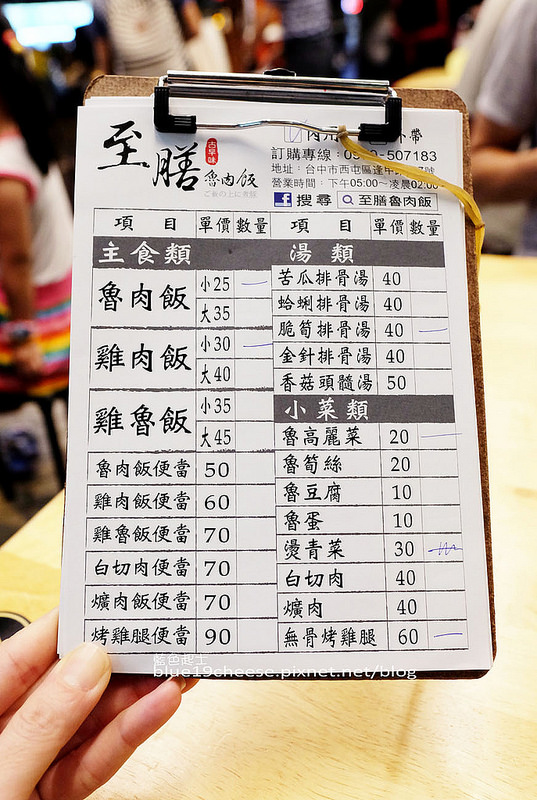 至膳
古早味
魯肉飯
內用 外帶
訂購專線:0 -507183
地址:台中市西屯區逢甲 號
營業時間:下午05:00~凌晨02:00
f 搜尋 至膳魯肉飯
項目 單價 數量
主食類
魯肉飯 小25 一
大35
雞肉飯 小30 一
大40
雞魯飯 小35
大45
魯肉飯便當 50
雞肉飯便當 60
雞魯飯便當 70
白切肉便當 70
爌肉飯便當 70
烤雞腿便當 90
項目 單價 數量
湯類
苦瓜排骨湯 40
蛤蜊排骨湯 40
脆筍排骨湯 40 一
金針排骨湯 40
香菇頭髓湯 50
小菜類
魯高麗菜 20 一
魯筍絲 20
魯豆腐 10
魯蛋 10
燙青菜 30
白切肉 40
爌肉 40
無骨烤雞腿 60 一
藍色起士
blue19cheese.pixnet.net/blog